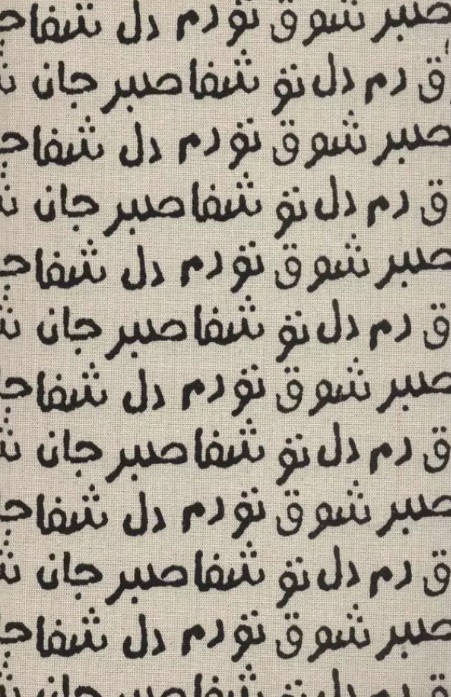 صبر شوق تو دم دل شفا
ق دم دل تو شفا صبر جان
صبر شوق تو دم دل شفا
ق دم دل تو شفا صبر جان
صبر شوق تو دم دل شفا
ق دم دل تو شفا صبر جان
صبر شوق تو دم دل شفا
ق دم دل تو شفا صبر جان
صبر شوق تو دم دل شفا
ق دم دل تو شفا صبر جان
صبر شوق تو دم دل شفا